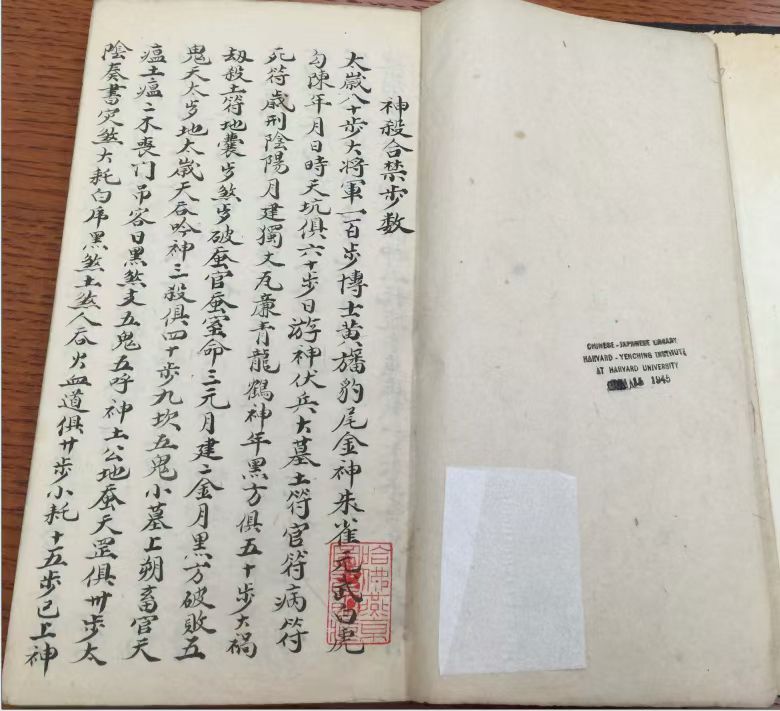 神殺合禁步数
太歲八十步大將軍一百步博士黄旛豹尾金神朱雀元武白虎
勾陳年月日時天坑俱六十步日游神伏兵大墓土符官符病符
死符歲刑陰陽月建獨火瓦廉青龍鶴神年黑方俱五十步大禍
劫殺土符地囊歲煞歲破蚕官蚕室命三元月建二金月黑方破敗五
鬼天太歲地太歲天吞吟神三殺俱四十步九坎五鬼小墓上朔畜官天
瘟土瘟二木喪门吊客日黑煞支五鬼五呼神土公地蚕天罡俱卅步太
陰奏書灾煞大耗白虎黑煞土煞人吞火血道俱廿步小耗十五步已上神
哈佛燕京
CHINESE-JAPANESE LIBRARY
HARVARD-YENCHING INSTITUTE
AT HARVARD UNIVERSITY
1945